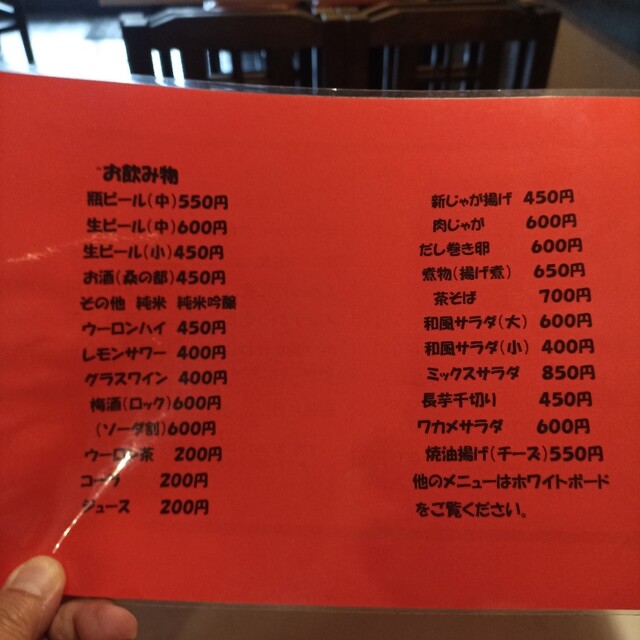 お飲み物
瓶ビール(中)550円
生ビール(中)600円
生ビール(小)450円
お酒(桑の都)450円
その他 純米 純米吟醸
ウーロンハイ 450円
レモンサワー 400円
グラスワイン 400円
梅酒(ロック)600円
(ソーダ割)600円
ウーロン茶 200円
コーラ 200円
ジュース 200円
新じゃが揚げ 450円
肉じゃが 600円
だし巻き卵 600円
煮物(揚げ煮) 650円
茶そば 700円
和風サラダ(大) 600円
和風サラダ(小) 400円
ミックスサラダ 850円
長芋千切り 450円
ワカメサラダ 600円
焼油揚げ(チーズ)550円
他のメニューはホワイトボード
をご覧ください。